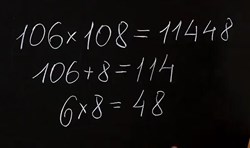 106×108=11448
106+8=114
6×8=48